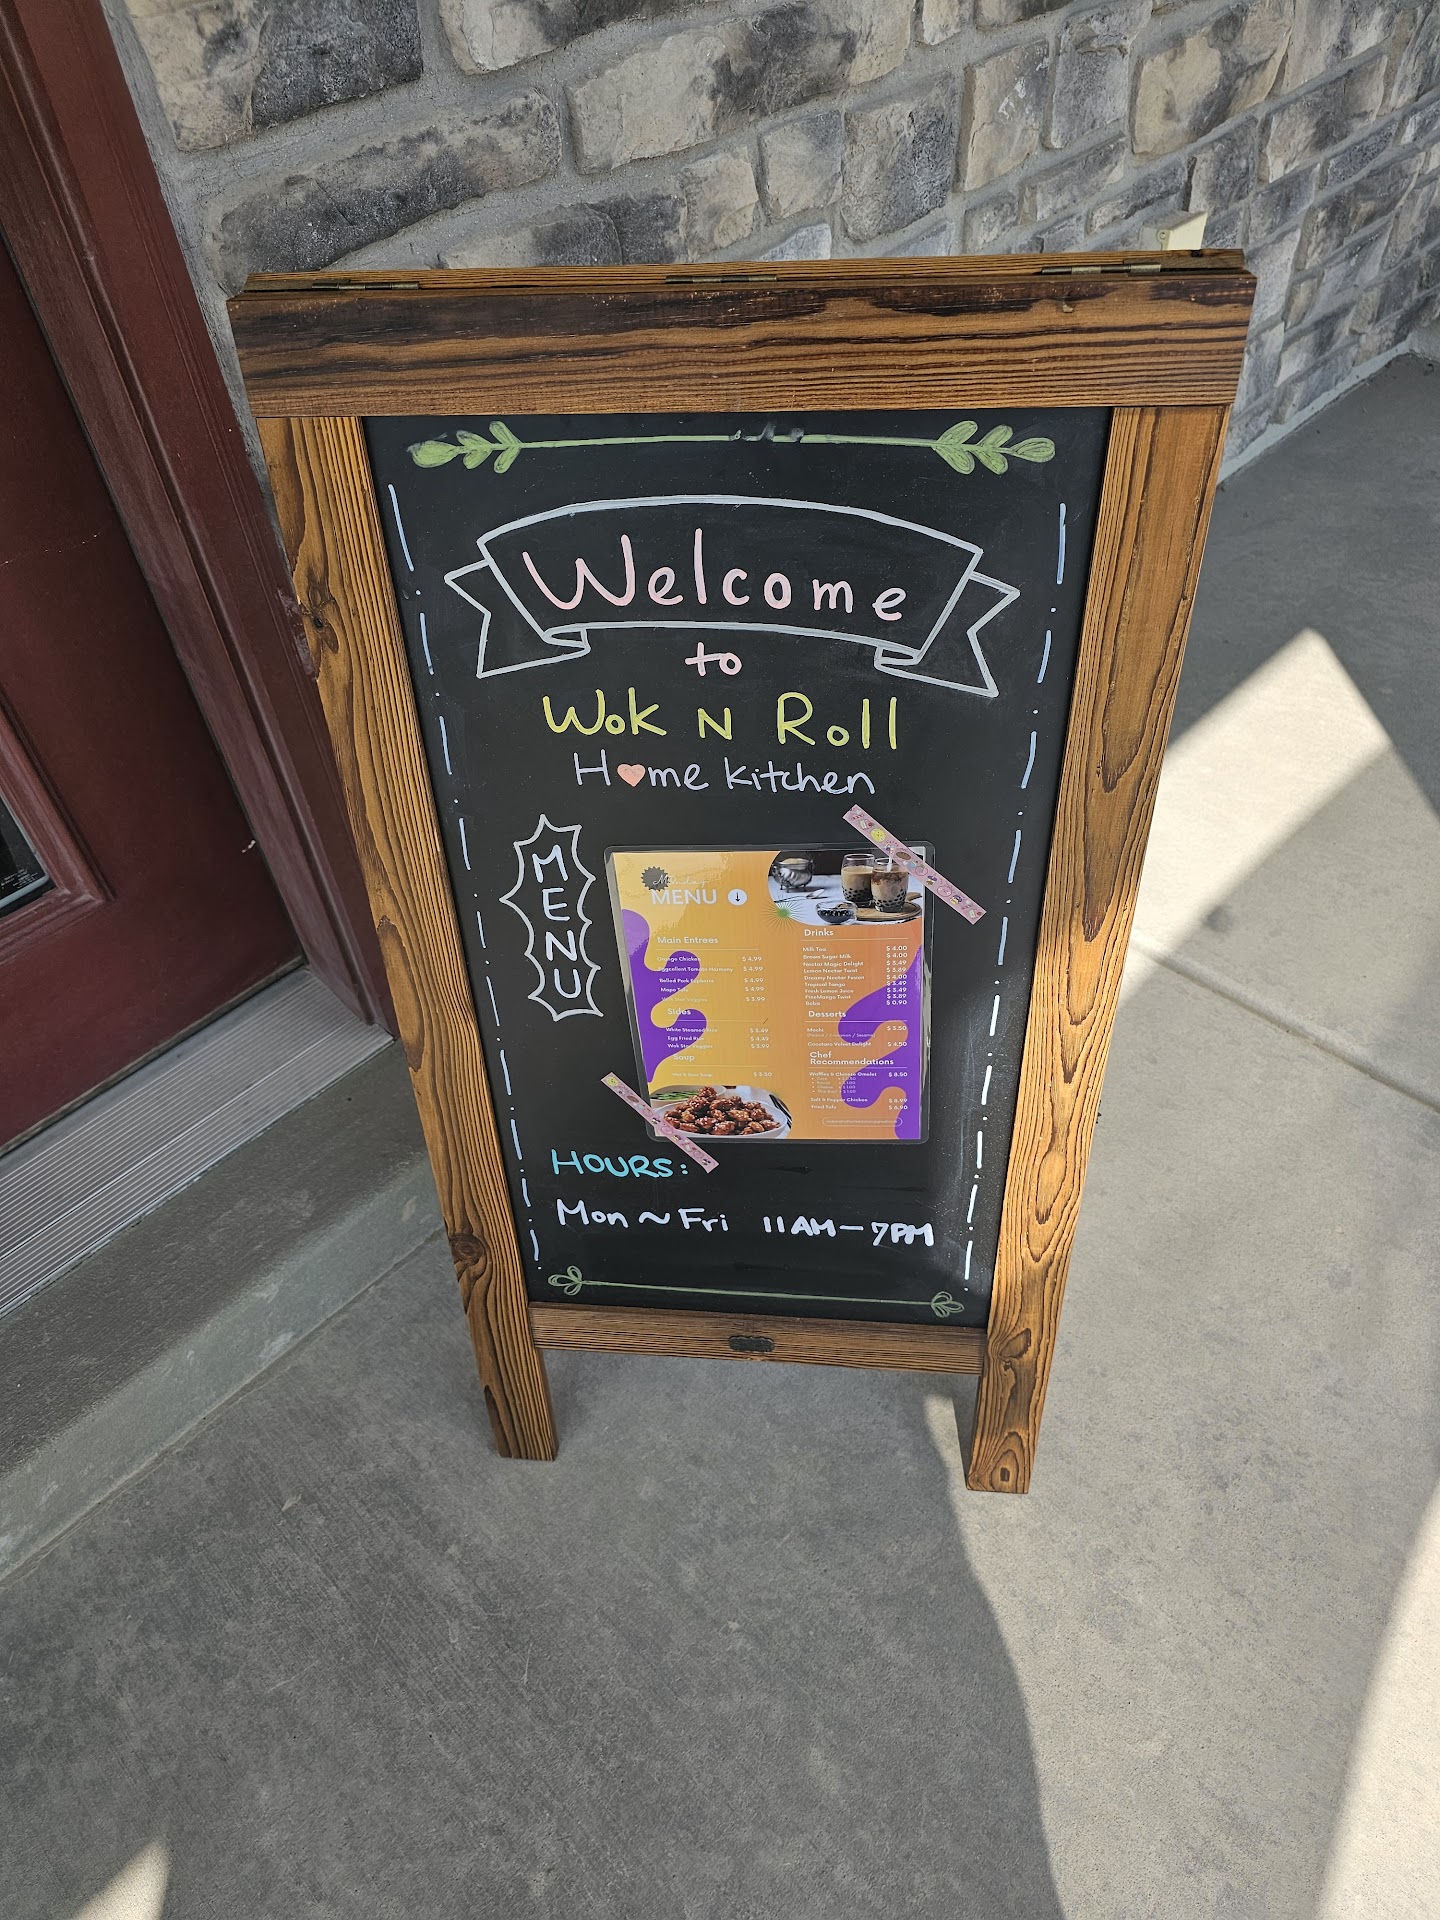 Welcome
to
Wok N Roll
Home Kitchen
MENU
Monday
MENU
Main Entrees
Orange Chicken $ 4.99
Eggcellent Tomato Harmony $ 4.99
Belled Pork Euphoria $ 4.99
Mapo Tofu $ 4.99
Wok Star Veggies $ 3.99
Sides
White Steamed Rice $ 3.49
Egg Fried Rice $ 4.49
Wok Star Veggies $ 3.99
Soup
Hot & Sour Soup $ 3.50
Drinks
Milk Tea $ 4.00
Brown Sugar Milk $ 4.00
Nectar Magic Delight $ 3.49
Lemon Nectar Twist $ 3.89
Dreamy Nectar Fusion $ 4.00
Tropical Tango $ 3.49
Fresh Lemon Juice $ 3.49
PineMango Twist $ 3.89
Boba $ 0.90
Desserts
Mochi $ 3.50
Velvet Delight $ 4.50
Chef
Recommendations
Waffles & Chinese Omelet $ 8.50
Salt & Pepper Chicken $ 8.99
Fried Tofu $ 6.90
HOURS:
Mon ~ Fri 11AM – 7PM